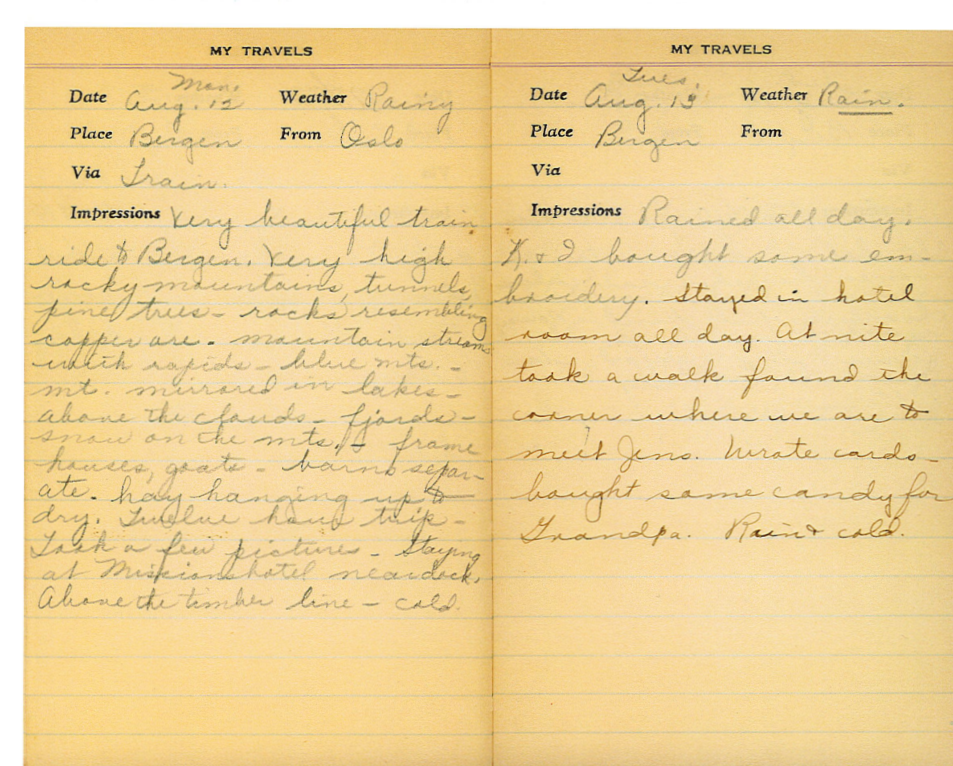 MY TRAVELS
Mon.
Date Aug. 12 Weather Rainy
Place Bergen From Oslo
Via Train.
Impressions Very beautiful train
ride to Bergen. Very high
rocky mountains, tunnels,
pine trees - rocks resembling
copper ore - mountain streams
with rapids - blue mts. -
mt. mirrored in lakes -
above the clouds - fjords -
snow on the mts. - frame
houses, goats - barns separ-
ate. hay hanging up to
dry. Twelve hour trip -
Took a few pictures - Staying
at Missionshotel near dock.
Above the timber line - cold.
MY TRAVELS
Tues.
Date Aug. 13 Weather Rain.
Place Bergen From
Via
Impressions Rained all day.
K. & I bought some em-
broidery. Stayed in hotel
room all day. At nite
took a walk found the
corner where we are to
meet Jens. Wrote cards -
bought some candy for
Grandpa. Rain & cold.